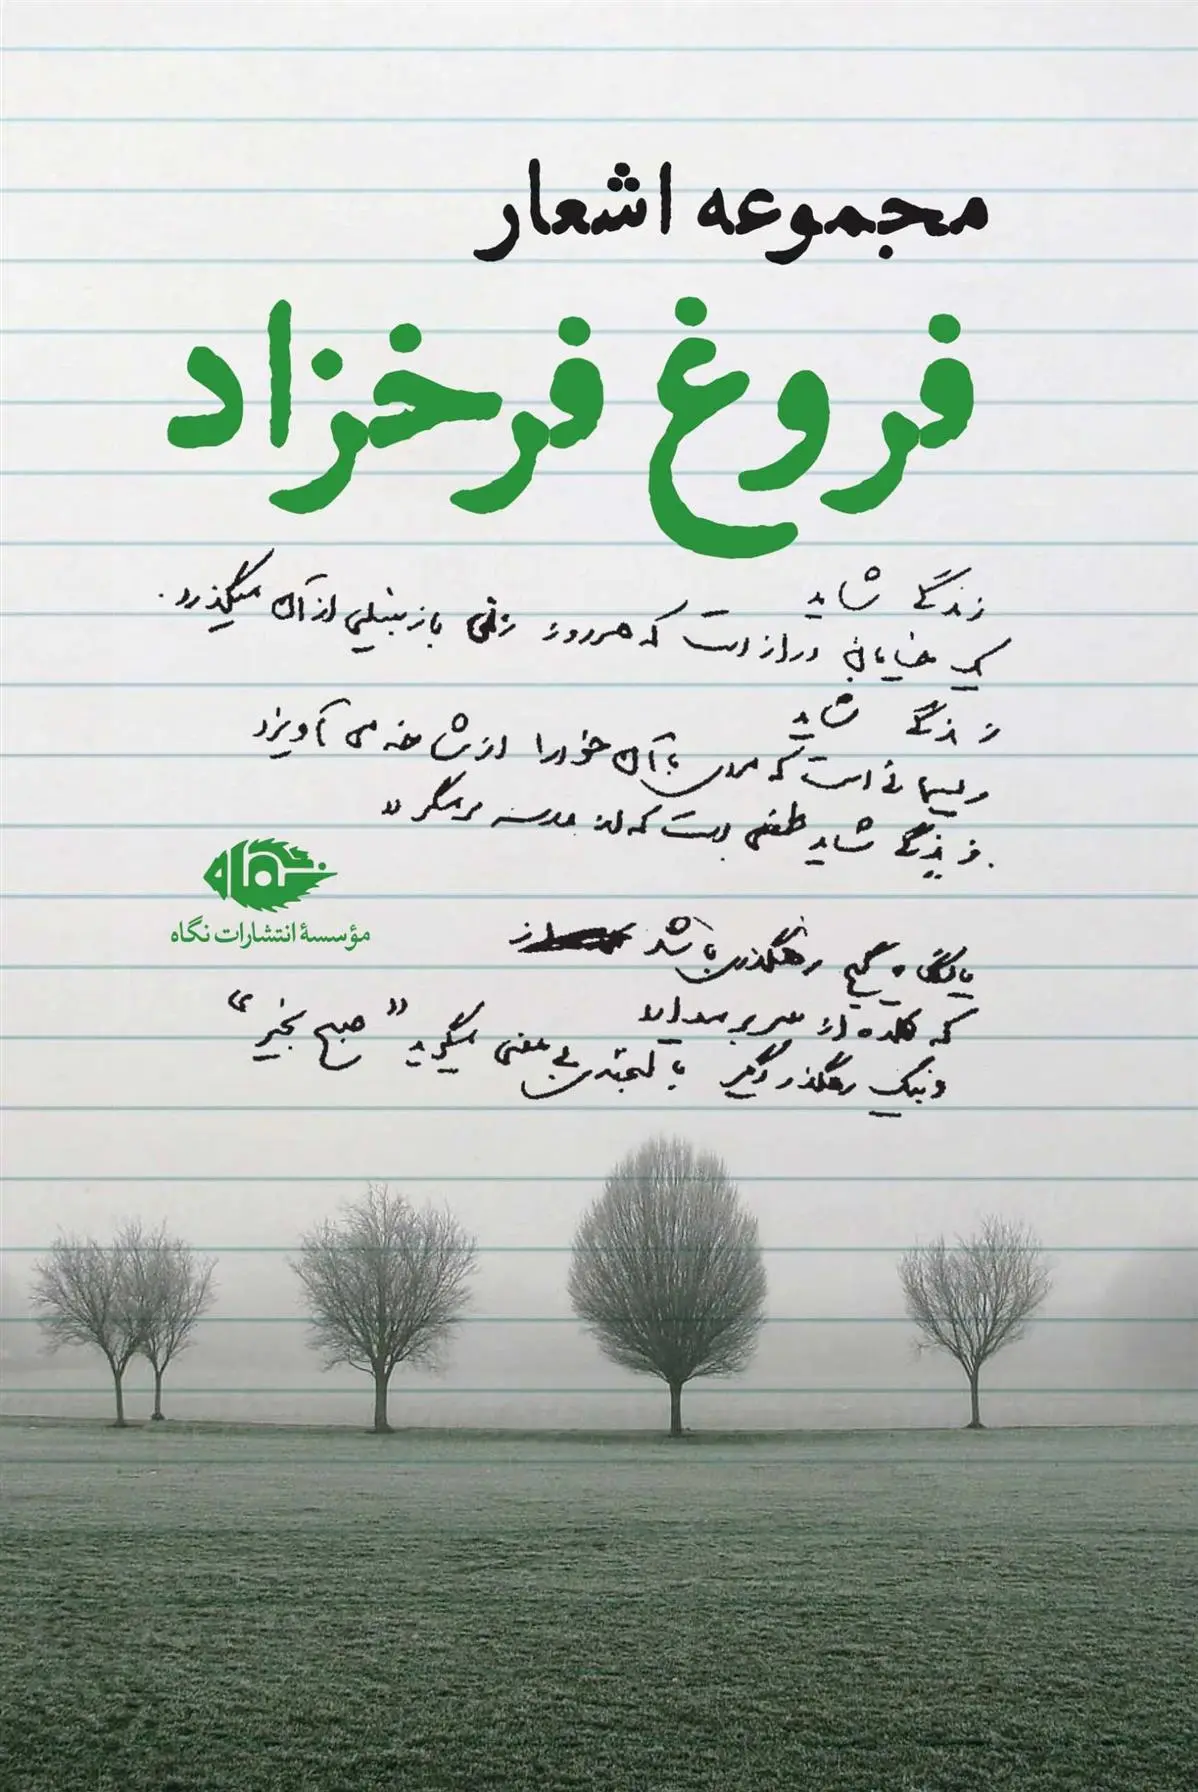 مجموعه اشعار
فروغ فرخزاد
زندگی شاید
یک خیابان دراز است که هر روز زنی با زنبیلی از آن میگذرد.
زندگی شاید
ریسمانی است که مردی با آن خود را از شاخه می آویزد
زندگی شاید طفلی است که از مدرسه بر میگردد
نگاه
مؤسسهٔ انتشارات نگاه
گیج رهگذری باشد
که کلاه از سر بر میدارد
و بیک رهگذر دیگر با لبخندی بی معنی میگوید "صبح بخیر"